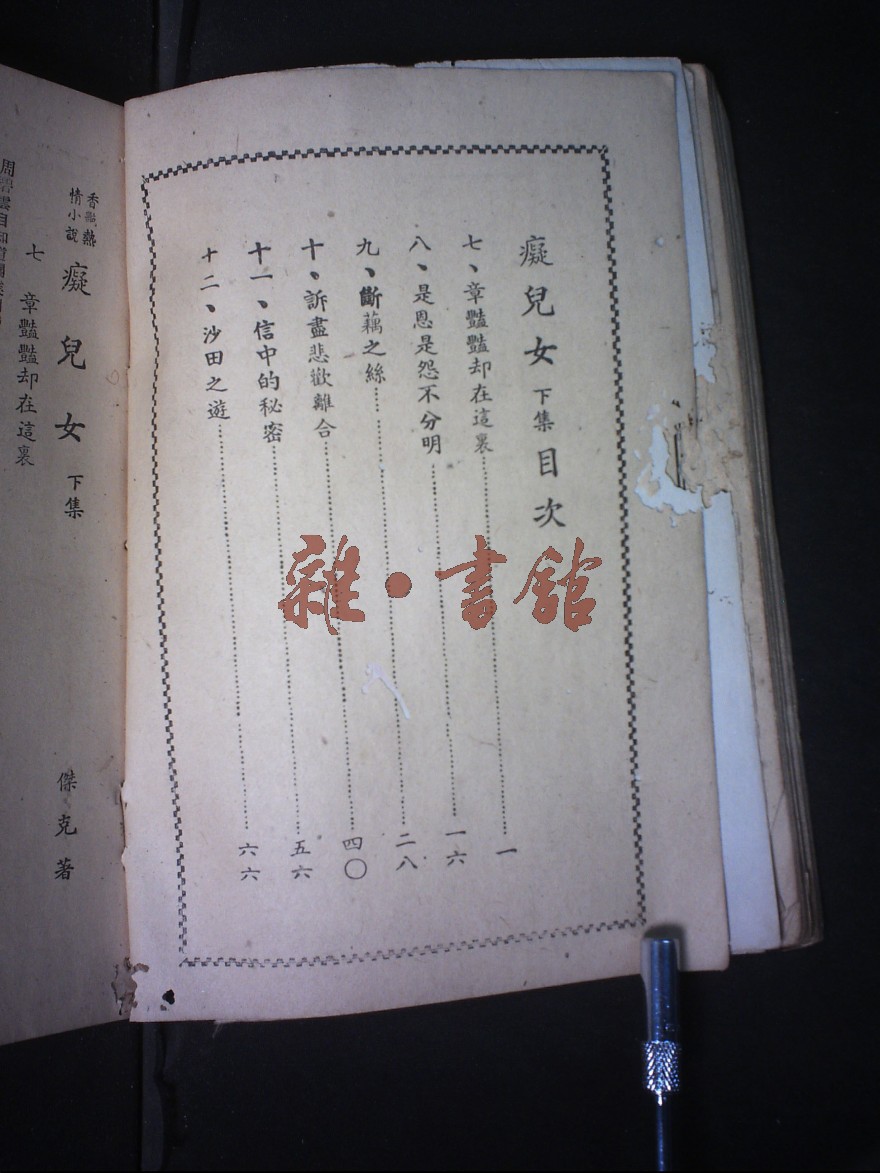 癡兒女 下集 目次
七、章豔豔却在這裏……一
八、是恩是怨不分明……一六
九、斷藕之絲……二八
十、訴盡悲歡離合……四〇
十一、信中的秘密……五六
十二、沙田之遊……六六
雜·書館
香豔熱
情小說
癡兒女 下集
傑克著
七 章豔豔却在這裏